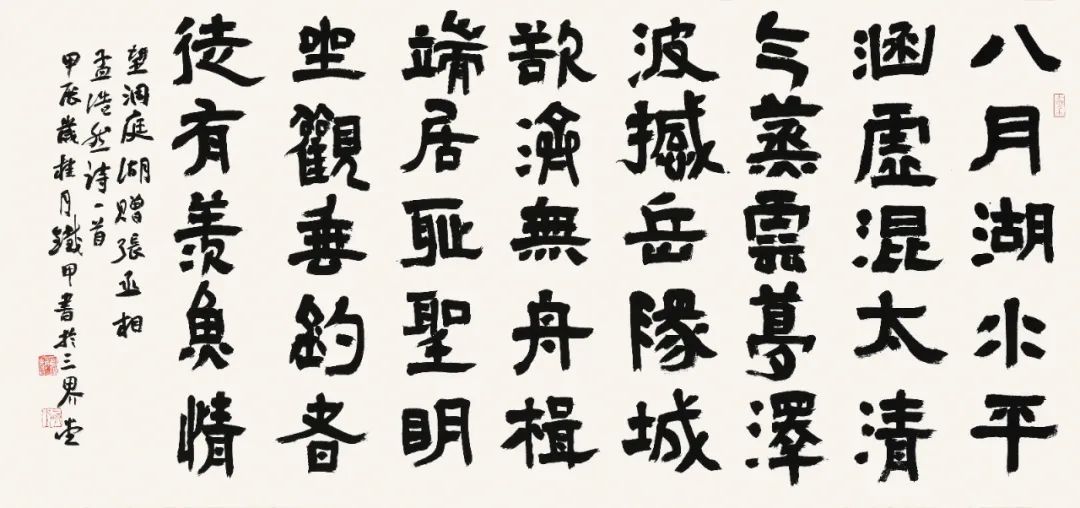 八月湖水平
涵虛混太清
气蒸雲夢澤
波撼岳陽城
欲濟無舟楫
端居耻聖明
坐觀垂釣者
徒有羨魚情
望洞庭湖贈張丞相
孟浩然詩一首
甲辰歲桂月鐵甲書於三界堂